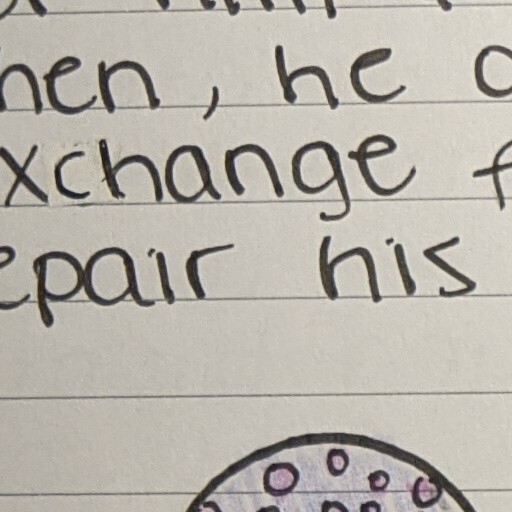 hen, he
xchange f
epair his